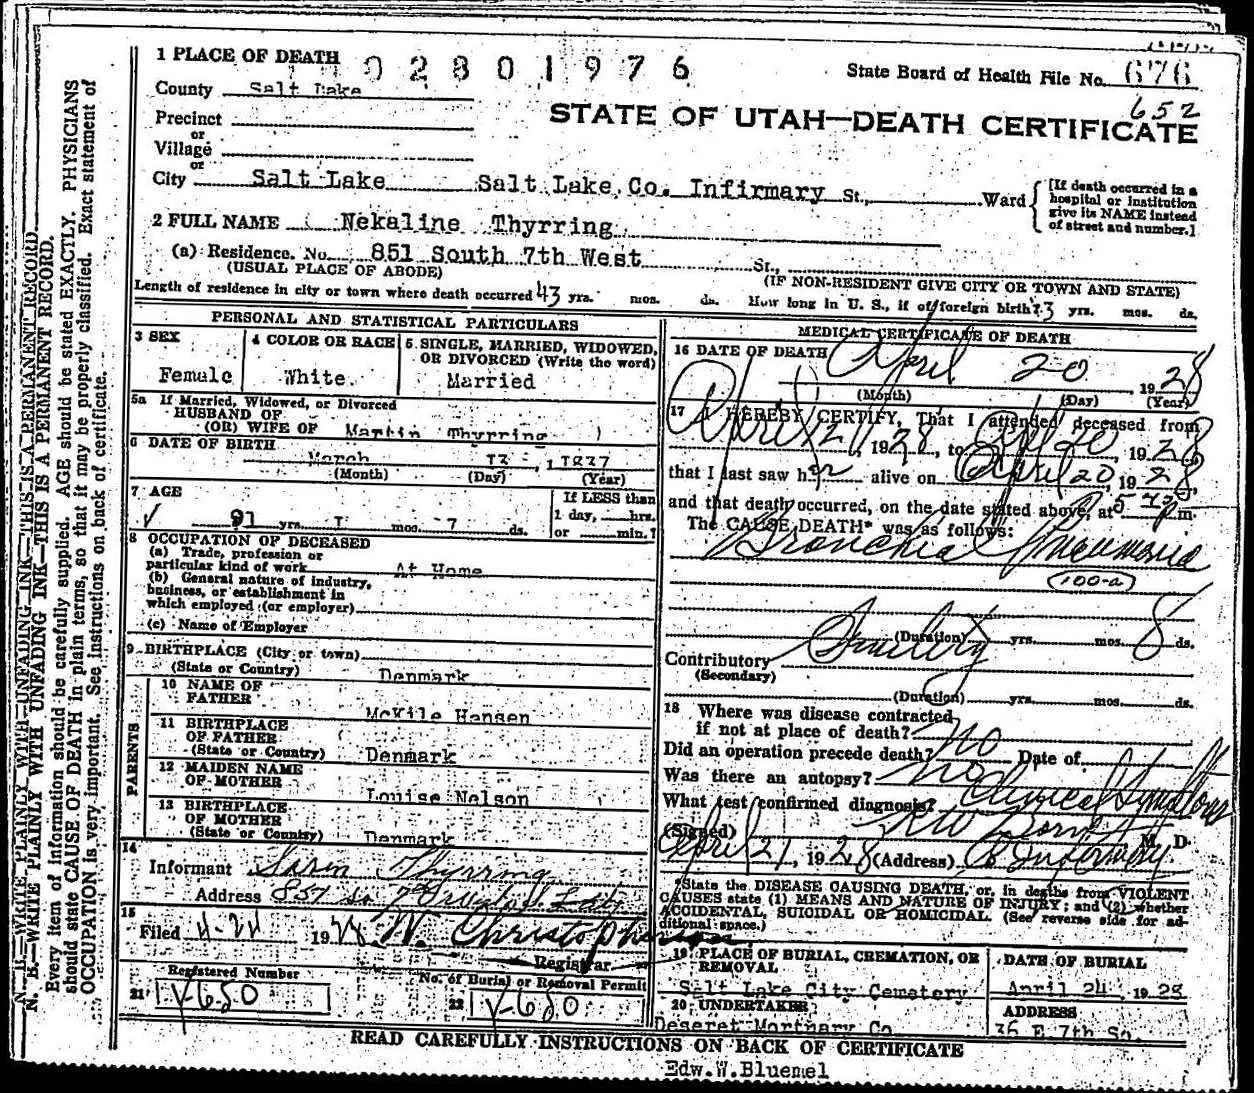 1 PLACE OF DEATH 02801976
State Board of Health File No. 676
652
County Salt Lake
STATE OF UTAH—DEATH CERTIFICATE
Precinct
or
Village
or
City Salt Lake Salt Lake Co. Infirmary St., Ward
[If death occurred in a hospital or institution give its NAME instead of street and number.]
2 FULL NAME Nekaline Thyrring
(a) Residence. No. 851 South 7th West St.,
(USUAL PLACE OF ABODE) (IF NON-RESIDENT GIVE CITY OR TOWN AND STATE)
Length of residence in city or town where death occurred 43 yrs. mos. ds. How long in U. S., if of foreign birth? yrs. mos. ds.
PERSONAL AND STATISTICAL PARTICULARS
3 SEX
Female
4 COLOR OR RACE
White
5 SINGLE, MARRIED, WIDOWED,
OR DIVORCED (Write the word)
Married
5a If Married, Widowed, or Divorced
HUSBAND OF
(OR) WIFE OF Martin Thyrring
6 DATE OF BIRTH
March 13, 1837
(Month) (Day) (Year)
7 AGE
91 yrs. 1 mos. 7 ds.
If LESS than
1 day, hrs.
or min.?
8 OCCUPATION OF DECEASED
(a) Trade, profession or
particular kind of work At Home
(b) General nature of industry,
business, or establishment in
which employed (or employer)
(c) Name of Employer
9 BIRTHPLACE (City or town)
(State or Country) Denmark
PARENTS
10 NAME OF
FATHER McKile Hansen
11 BIRTHPLACE
OF FATHER
(State or Country) Denmark
12 MAIDEN NAME
OF MOTHER Louise Nelson
13 BIRTHPLACE
OF MOTHER
(State or Country) Denmark
14
Informant Thyrring
Address 857 So 7
15
Filed 4-24 1928 W. Christopherson
Registrar
Registered Number
21 V-680
No. of Burial or Removal Permit
22 V-680
MEDICAL CERTIFICATE OF DEATH
16 DATE OF DEATH April 20 1928
(Month) (Day) (Year)
17 I HEREBY CERTIFY, That I attended deceased from
April 1928, to Apl 20, 1928
that I last saw her alive on April 20, 1928,
and that death occurred, on the date stated above, at 5 p m.
The CAUSE DEATH* was as follows:
Bronchial Pneumonia
100-a
(Duration) yrs. mos. 8 ds.
Contributory Senility
(Secondary)
(Duration) yrs. mos. ds.
18 Where was disease contracted
if not at place of death?
Did an operation precede death? no Date of
Was there an autopsy? no
What test confirmed diagnosis? Clinical Symptoms
(Signed) M. D.
April 21, 1928 (Address) Co Infirmary
*State the DISEASE CAUSING DEATH, or, in deaths from VIOLENT
CAUSES state (1) MEANS AND NATURE OF INJURY; and (2) whether
ACCIDENTAL, SUICIDAL OR HOMICIDAL. (See reverse side for ad-
ditional space.)
19 PLACE OF BURIAL, CREMATION, OR
REMOVAL
Salt Lake City Cemetery
DATE OF BURIAL
April 24, 1928
20 UNDERTAKER
Deseret Mortuary Co
ADDRESS
36 E. 7th So.
READ CAREFULLY INSTRUCTIONS ON BACK OF CERTIFICATE
Edw. W. Bluemel
N. B.—WRITE PLAINLY WITH UNFADING INK—THIS IS A PERMANENT RECORD.
N. B.—WRITE PLAINLY WITH UNFADING INK—THIS IS A PERMANENT RECORD.
Every item of information should be carefully supplied. AGE should be stated EXACTLY. PHYSICIANS
should state CAUSE OF DEATH in plain terms, so that it may be properly classified. Exact statement of
OCCUPATION is very important. See instructions on back of certificate.